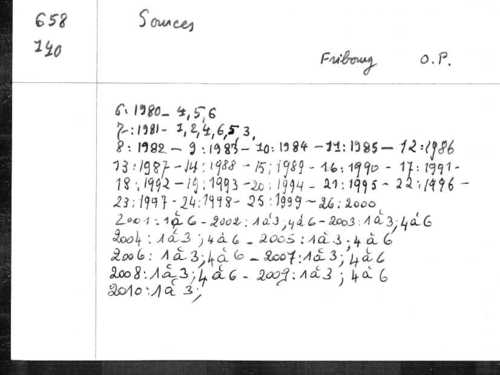 658
140
Sources
Fribourg O.P.
6:1980 - 4,5,6
7:1981 - 1,2,4,6,5,3,
8:1982 - 9:1983 - 10:1984 - 11:1985 - 12:1986
13:1987 - 14:1988 - 15:1989 - 16:1990 - 17:1991 -
18:1992 - 19:1993 - 20:1994 - 21:1995 - 22:1996 -
23:1997 - 24:1998 - 25:1999 - 26:2000
2001:1à6 - 2002:1à3,4à6 - 2003:1à3;4à6
2004:1à3;4à6 - 2005:1à3;4à6
2006:1à3;4à6 - 2007:1à3;4à6
2008:1à3;4à6 - 2009:1à3;4à6
2010:1à3;